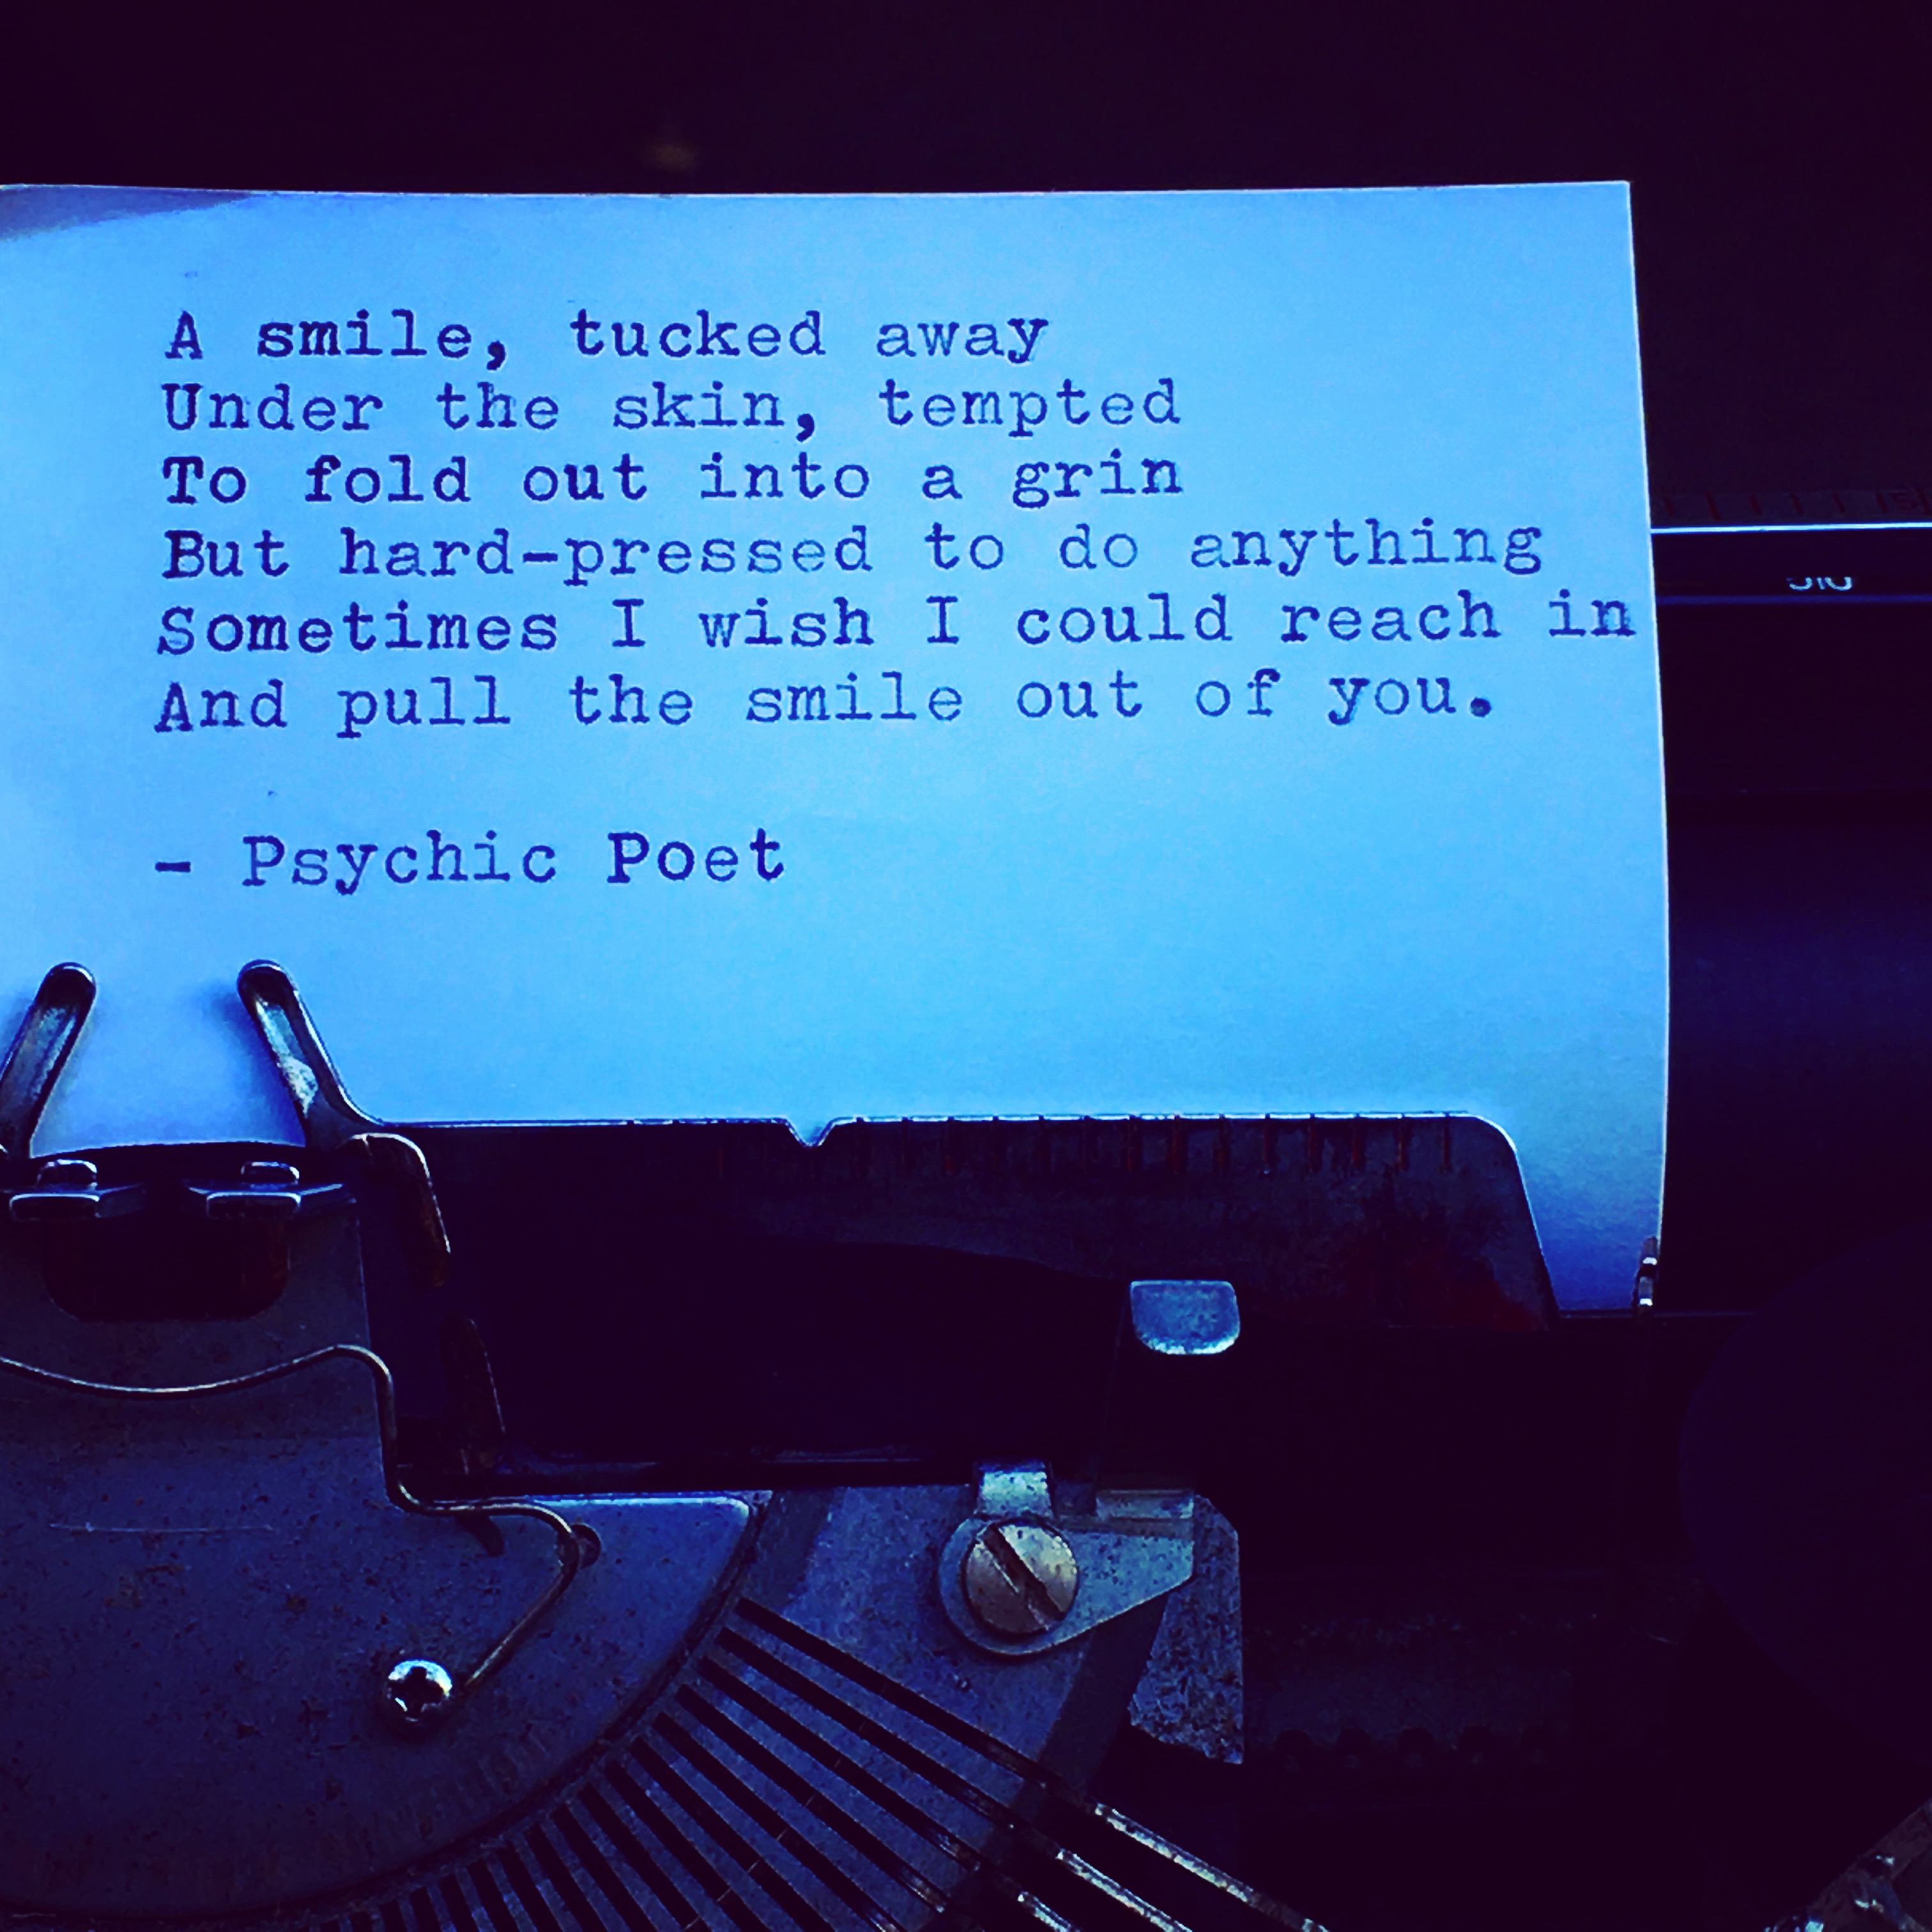 A smile, tucked away
Under the skin, tempted
To fold out into a grin
But hard-pressed to do anything
Sometimes I wish I could reach in
And pull the smile out of you.
- Psychic Poet